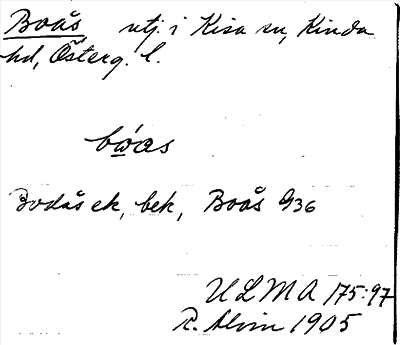 Boås utj. i Kisa sn, Kinda
hd, Österg. l.
bẃas
Bodås ek, bek, Boås G36
ULMA 175:97
R. Alvin 1905